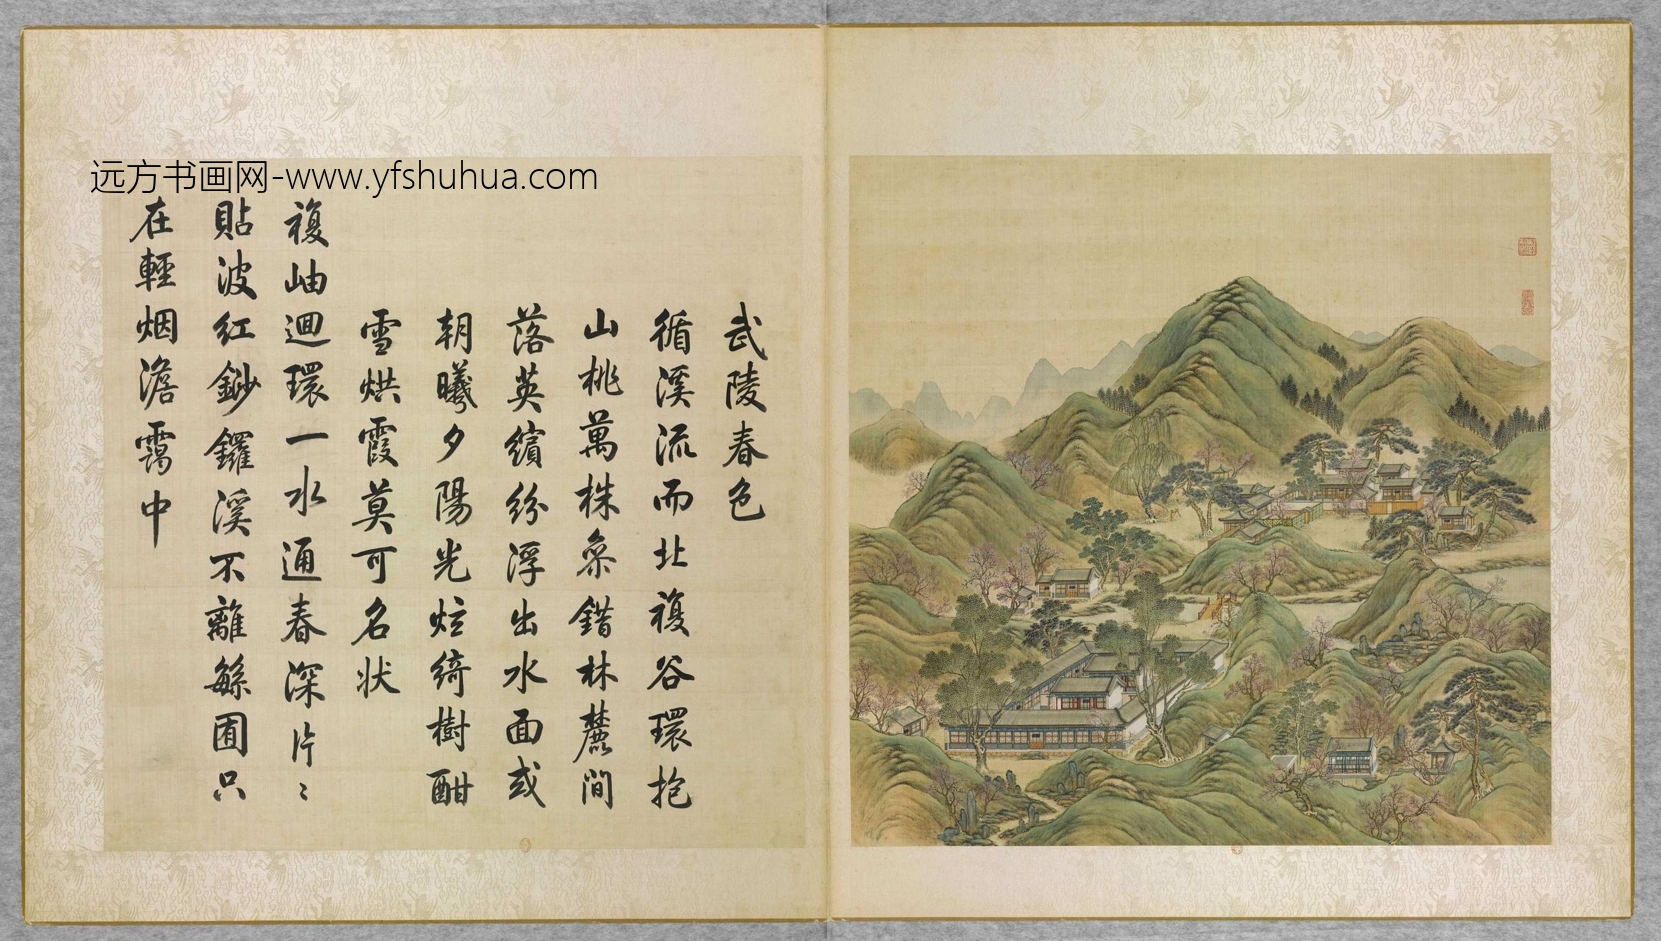 远方书画网-www.yfshuhua.com
武陵春色
循溪流而北複谷環抱
山桃萬株叅錯林麓間
落英繽紛浮出水面或
朝曦夕陽光炫綺樹酣
雪烘霞莫可名状
複岫迴環一水通春深片〻
貼波紅鈔鑼溪不離繇囿只
在輕烟澹靄中